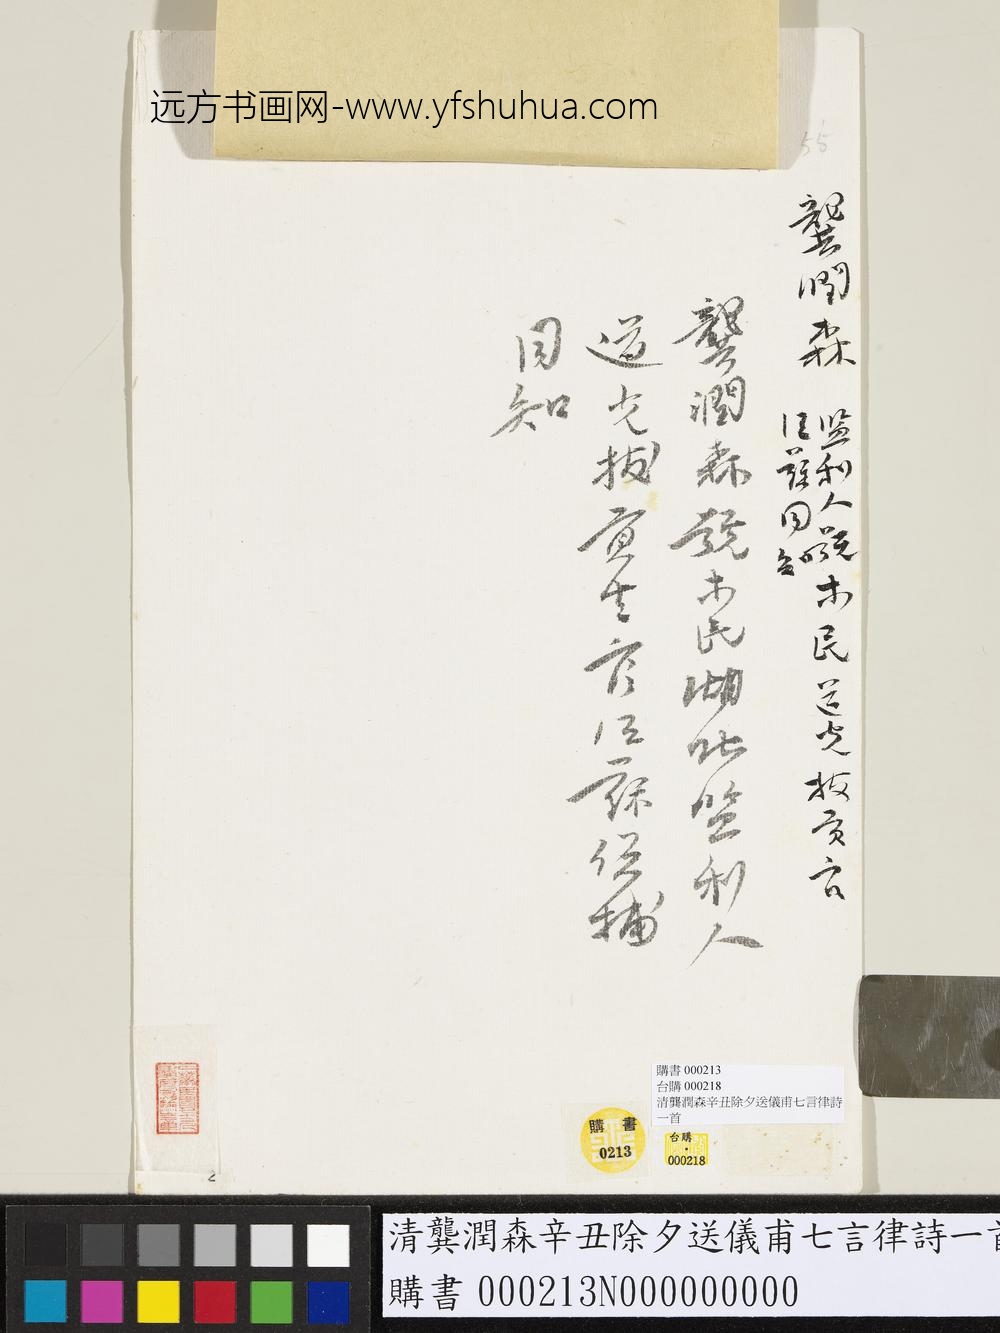 远方书画网-www.yfshuhua.com
55
龔潤森
监利人號木民道光拔貢官
江蘇同知
龔潤森號木民湖北监利人
道光拔貢生官江蘇候補
同知
購書 000213
台購 000218
清龔潤森辛丑除夕送儀甫七言律詩
一首
購書
0213
台購
000218
清龔潤森辛丑除夕送儀甫七言律詩一首
購書 000213N000000000